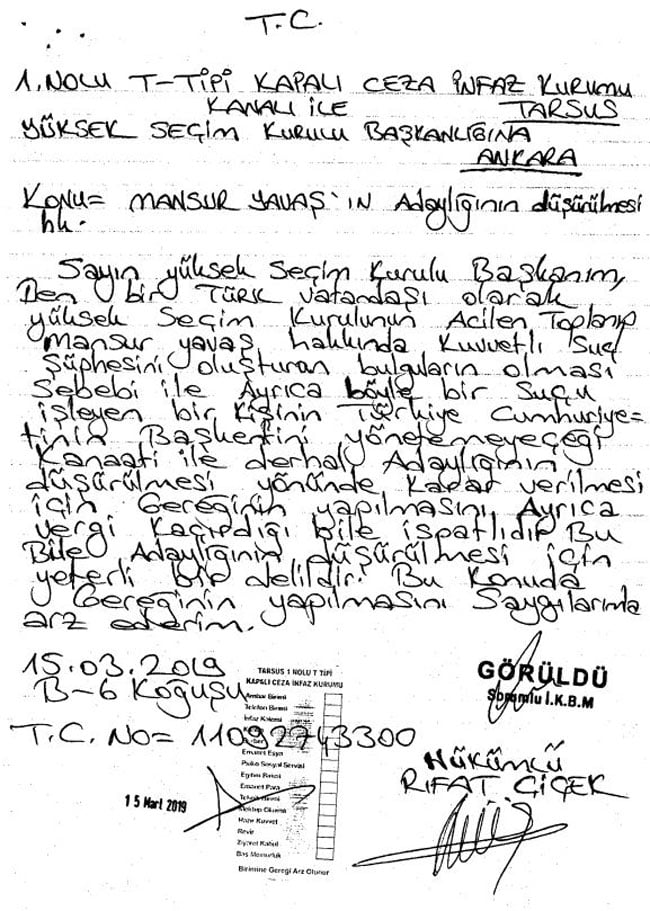 T.C.
1. NOLU T-TİPİ KAPALI CEZA İNFAZ KURUMU
KANALI İLE TARSUS
YÜKSEK SEÇİM KURULU BAŞKANLIĞINA
ANKARA
KONU= MANSUR YAVAŞ'IN Adaylığının düşürülmesi
hk.
Sayın yüksek Seçim Kurulu Başkanım,
Ben bir TÜRK vatandaşı olarak
yüksek Seçim Kurulunun Acilen Toplanıp
Mansur yavaş hakkında Kuvvetli Suç
Şüphesini oluşturan bulguların olması
Sebebi ile Ayrıca böyle bir Suçu
işleyen bir Kişinin Türkiye Cumhuriye=
tinin Başkentini yönetemeyeceği
Kanaati ile derhal Adaylığının
düşürülmesi yönünde Karar verilmesi
için Gereğinin yapılmasını, Ayrıca
vergi Kaçırdığı bile ispatlıdır Bu
Bile Adaylığının düşürülmesi için
yeterli bir delildir. Bu Konuda
Gereğinin yapılmasını Saygılarımla
arz ederim.
15.03.2019
B-6 Koğuşu
T.C. NO= 11092743300
TARSUS 1 NOLU T TİPİ
KAPALI CEZA İNFAZ KURUMU
Ambar Birimi
Telefon Birimi
İnfaz Kalemi
Emanet Eşya
Psiko Sosyal Servisi
Eğitim Birimi
Emanet Para
Teknik Birimi
Mektup Okuma
Hazır Kuvvet
Revir
Ziyaret Kabul
Baş Memurluk
Birimine Gereği Arz Olunur
15 Mart 2019
GÖRÜLDÜ
Sorumlu İ.K.B.M
HÜKÜMLÜ
RIFAT ÇİÇEK